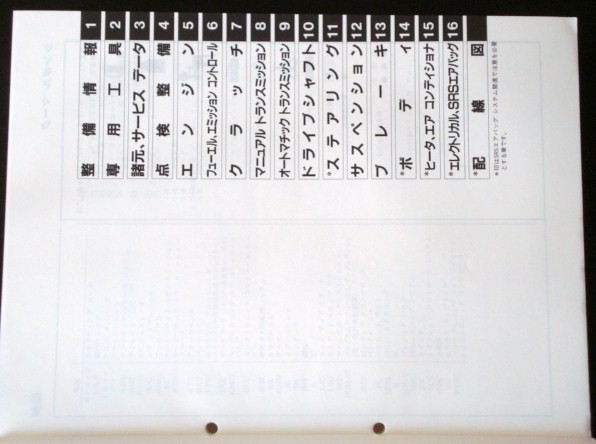 整備情報 1
専用工具 2
諸元、サービス データ 3
点検整備 4
エンジン 5
フューエル、エミッション コントロール 6
クラッチ 7
マニュアル トランスミッション 8
オートマチック トランスミッション 9
ドライブシャフト 10
*ステアリング 11
サスペンション 12
ブレーキ 13
*ボディ 14
*ヒータ、エア コンディショナ 15
*エレクトリカル、SRSエアバッグ 16
*配線図
*印はSRSエアバッグ システム関連で注意を必要
とする章です。